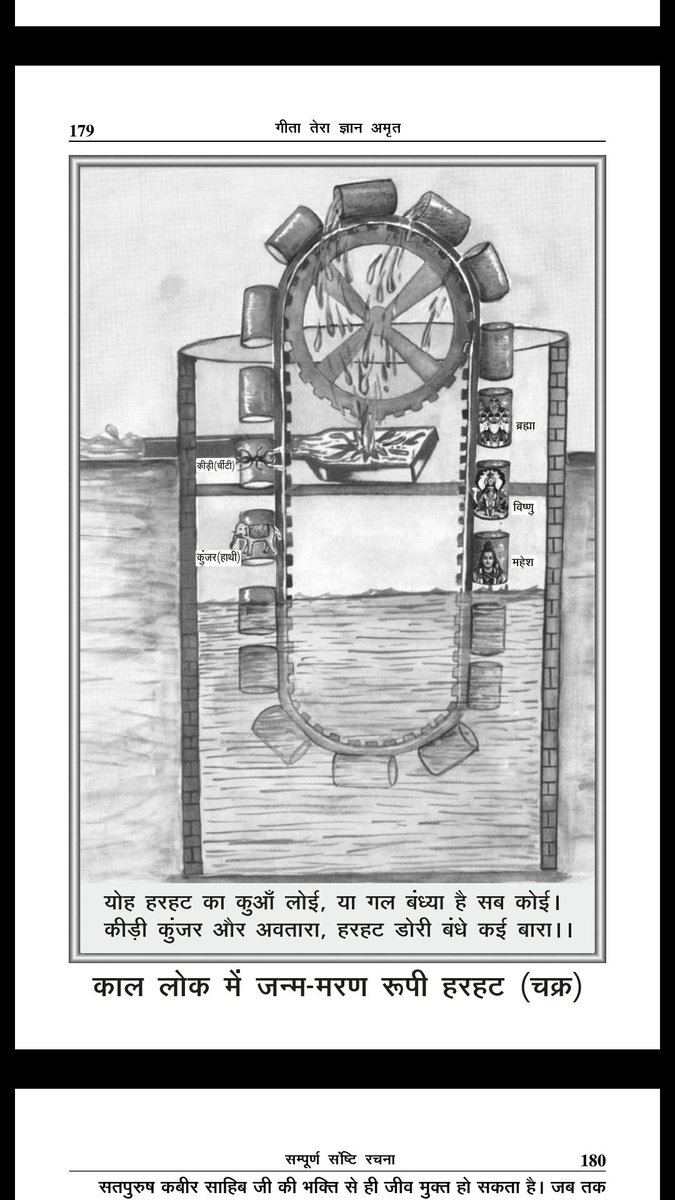 179
गीता तेरा ज्ञान अमृत
ब्रह्मा
कीड़ी(चींटी)
विष्णु
कुंजर(हाथी)
महेश
योह हरहट का कुआँ लोई, या गल बंध्या है सब कोई।
कीड़ी कुंजर और अवतारा, हरहट डोरी बंधे कई बारा।।
काल लोक में जन्म-मरण रूपी हरहट (चक्र)
सम्पूर्ण सृष्टि रचना
180
सतपुरुष कबीर साहिब जी की भक्ति से ही जीव मुक्त हो सकता है। जब तक